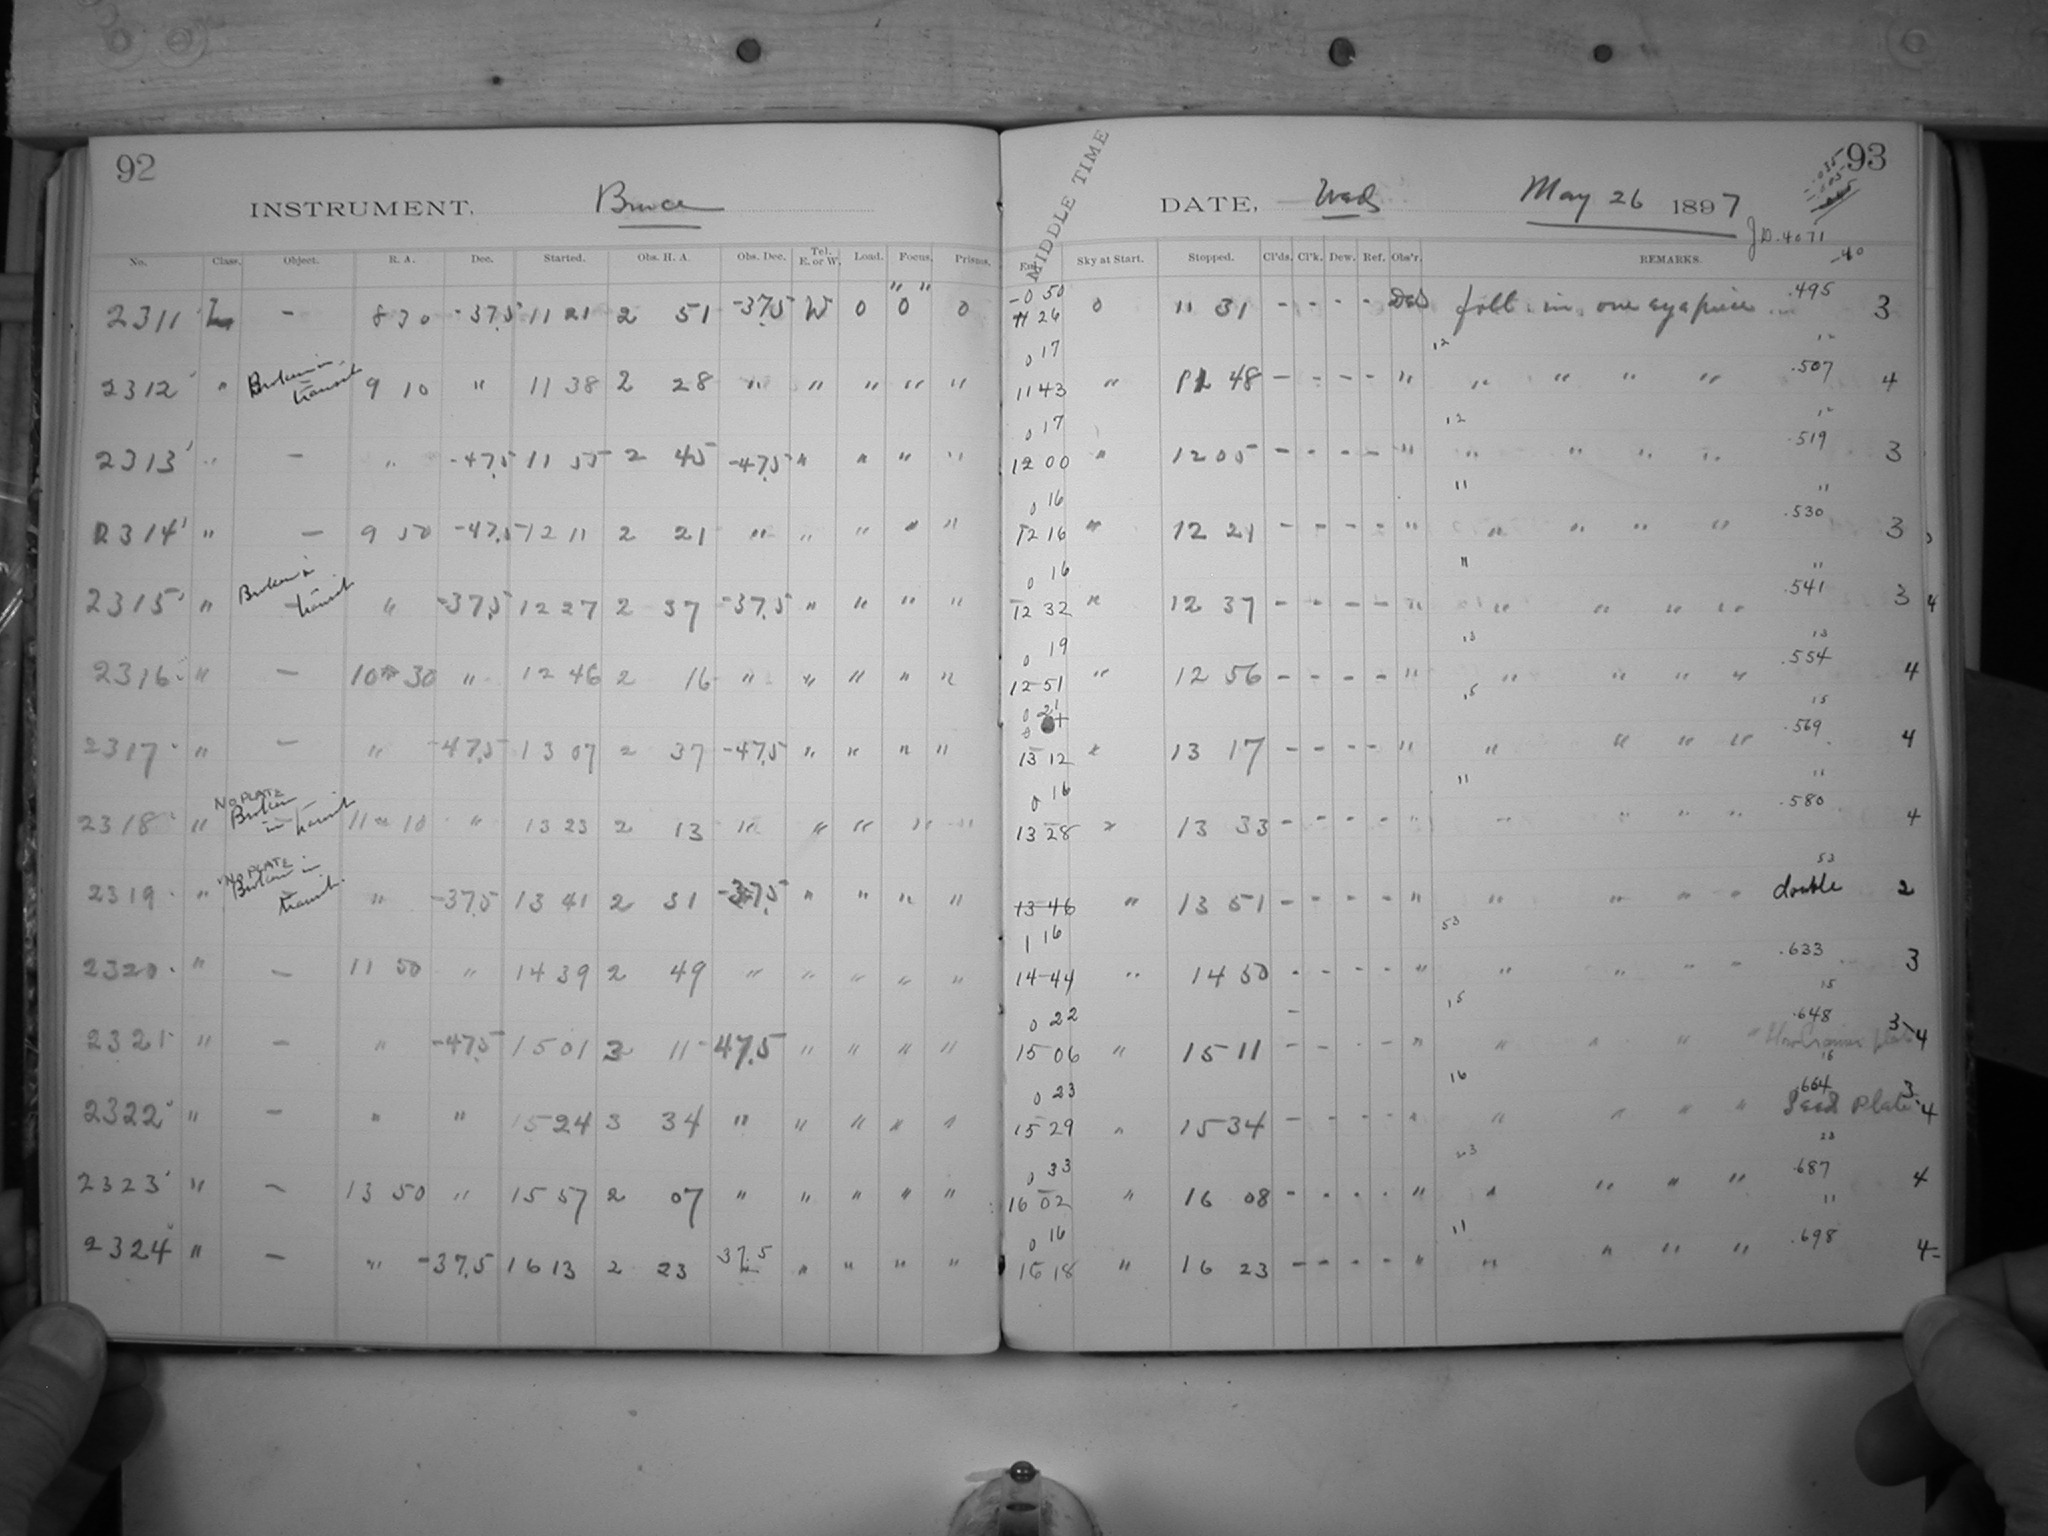 92
INSTRUMENT, Bruce
No. Class. Object. R. A. Dec. Started. Obs. H. A. Obs. Dec. Tel. E. or W. Load. Focus. Prisms.
2311 L - 8 30 -37.5 11 21 2 51 -37.5 W 0 0 0
2312 " Broken in transit 9 10 " 11 38 2 28 " " " " "
2313 " - " -47.5 11 55 2 45 -47.5 " " " "
2314 " - 9 50 -47.5 12 11 2 21 " " " " "
2315 " Broken in transit " -37.5 12 27 2 37 -37.5 " " " "
2316 " - 10 30 " 12 46 2 16 " " " " "
2317 " - " -47.5 13 07 2 37 -47.5 " " " "
2318 " NO PLATE Broken in transit 11 10 " 13 23 2 13 " " " " "
2319 " NO PLATE Broken in transit " -37.5 13 41 2 31 -37.5 " " " "
2320 " - 11 50 " 14 39 2 49 " " " " "
2321 " - " -47.5 15 01 3 11 -47.5 " " " "
2322 " - " " 15 24 3 34 " " " " "
2323 " - 13 50 " 15 57 2 07 " " " " "
2324 " - " -37.5 16 13 2 23 37.5 " " " "
93
MIDDLE TIME
DATE, Wed May 26 1897
J.D. 4071
-40
Sky at Start. Stopped. Cl'ds. Cl'k. Dew. Ref. Obs'r. REMARKS.
-0 50
11 26 0 11 31 - - - - foll. in one eyepiece .495 3
0 17 12 12
11 43 " 11 48 - - - - " " " " " .507 4
0 17 12 12
12 00 " 12 05 - - - - " " " " " .519 3
0 16 11 11
12 16 " 12 21 - - - - " " " " " .530 3
0 16 11 11
12 32 " 12 37 - - - - " " " " " .541 3 4
0 19 13 13
12 51 " 12 56 - - - - " " " " " .554 4
0 21 15 15
13 12 " 13 17 - - - - " " " " " .569 4
0 16 11 11
13 28 " 13 33 - - - - " " " " " .580 4
53
13 46 " 13 51 - - - - " " " " " double 2
1 16 53
14 44 " 14 50 - - - - " " " " " .633 3
0 22 15 15
15 06 " 15 11 - - - - " " " " " .648 3-4
0 23 16 16
15 29 " 15 34 - - - - " " " " " .664 Seed Plate 3-4
0 33 23 23
16 02 " 16 08 - - - - " " " " " .687 4
0 16 11 11
16 18 " 16 23 - - - - " " " " " .698 4-